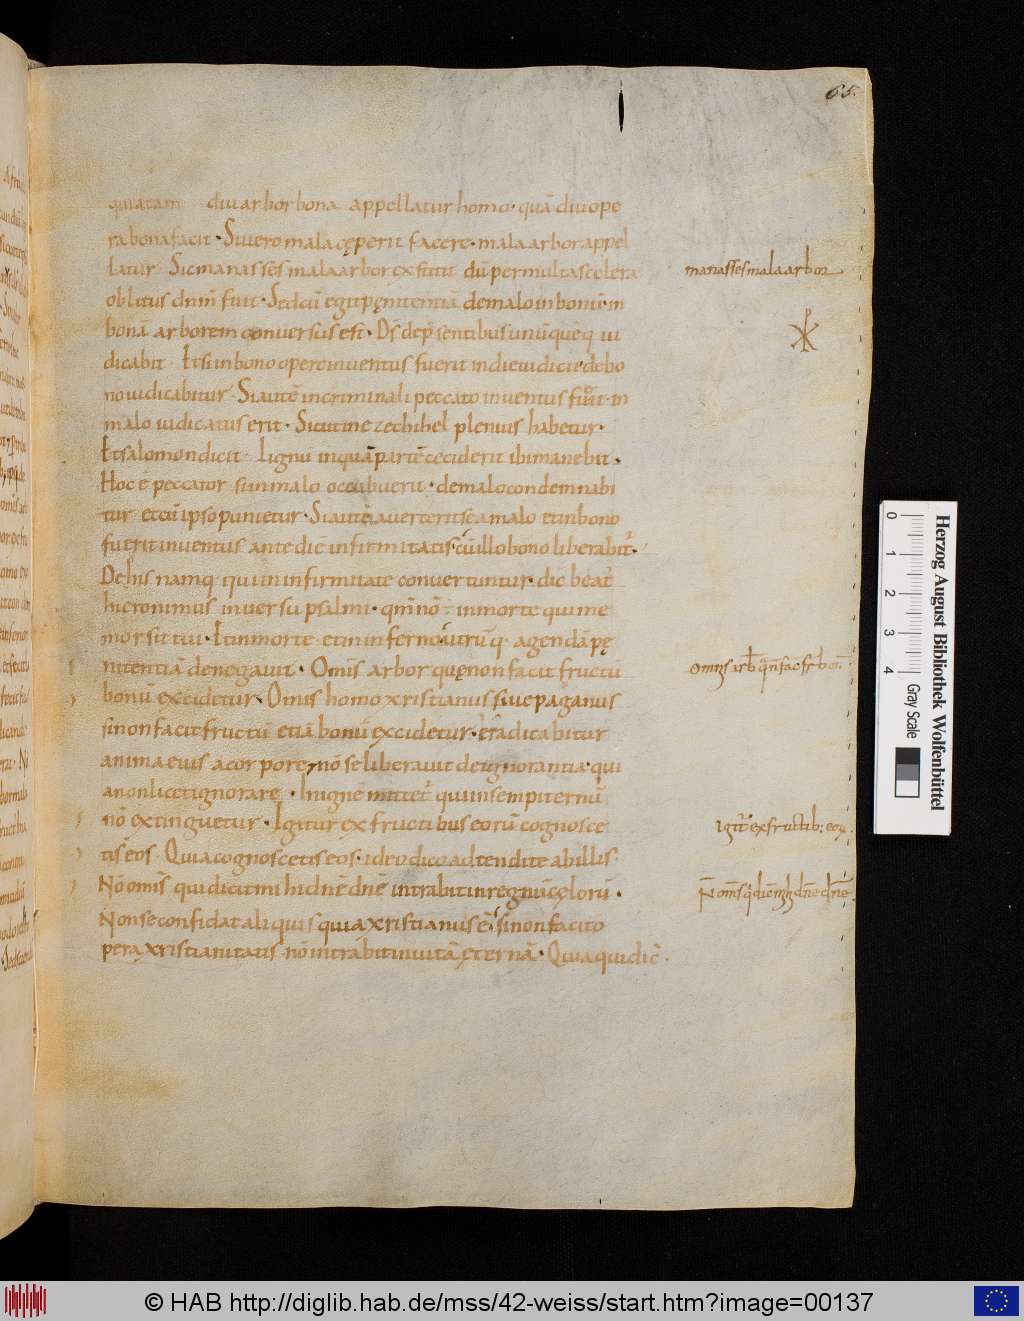 65.
quiatam diu arbor bona appellatur homo· quā diu ope
ra bona facit · Si uero mala cęperit facere· mala arbor appel
latur· Sic manasses mala arbor exstitit dū per multa scelera
oblitus dn̄m fuit · Sed cū egit pęnitentiā de malo in bonū in
bonā arborem conuersus est · Ds̄ dep̄sentibus unūquēq· iu
dicabit · Et si in bono opere inuentus fuerit in die iudicii de bo
no iudicabitur· Si autē in criminali peccato inuentus fuerit· in
malo iudicatus erit · Sicut in ezechihel plenius habetur·
Et salomon dicit · lignū in quā partē ceciderit ibi manebit·
Hoc ē peccator si in malo occubuerit · de malo condemnabi
tur et cū ipso punietur · Si autē auerterit se a malo et in bono
fuerit inuentus ante diē infirmitatis cū illo bono liberabit̄·
De his namq· qui in infirmitate conuertuntur· dic̄ beat̄
hieronimus in uersu psalmi · qm̄ nō ÷ in morte qui me
mor sit tui · Et in morte et in inferno utrūq· agendā pę
nitentiā denegauit · Omīs arbor quę non facit fructū
bonū excidetur· Omīs homo xristianus siue paganus
si non facit fructū etiā bonū excidetur· eradicabitur
anima eius a corpore, nō se liberauit de ignorantia· qui
a non licet ignorare · In ignē mittet̄ qui in sempiternū
nō extinguetur · Igitur ex fructibus eorū cognosce
tis eos· Quia cognoscetis eos· ideo dico adtendite ab illis·
Nō omīs qui dicit mihi dnē dnē intrabit in regnū cęlorū·
Non se confidat aliquis quia xristianus ē· si non facit o
pera xristianitatis nō intrabit in uitā ęternā· Quia qui dic̄·
manasses mala arbor
omīs arb q̄ n̄ fac fr bon
igit̄ ex fructib: eoꝝ
N̄ omīs q dic̄ mh dn̄e dn̄e
0 1 2 3 4
Herzog August Bibliothek Wolfenbüttel
Gray Scale
© HAB http://diglib.hab.de/mss/42-weiss/start.htm?image=00137